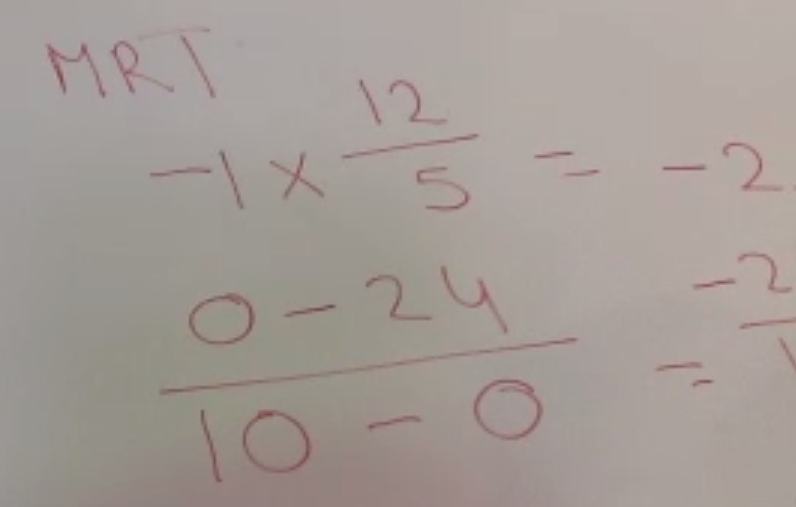 MRT
-1 × 12/5 = -2.
0 - 24 / 10 - 0 = -2